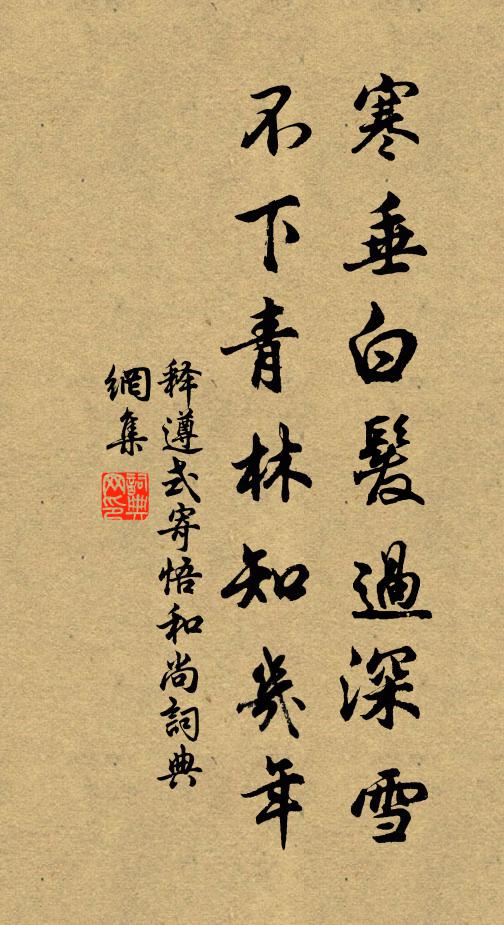 寒垂白髮過深雪
不下青林知幾年
释遵式寄悟和尚詞典
網集
詞典
网印